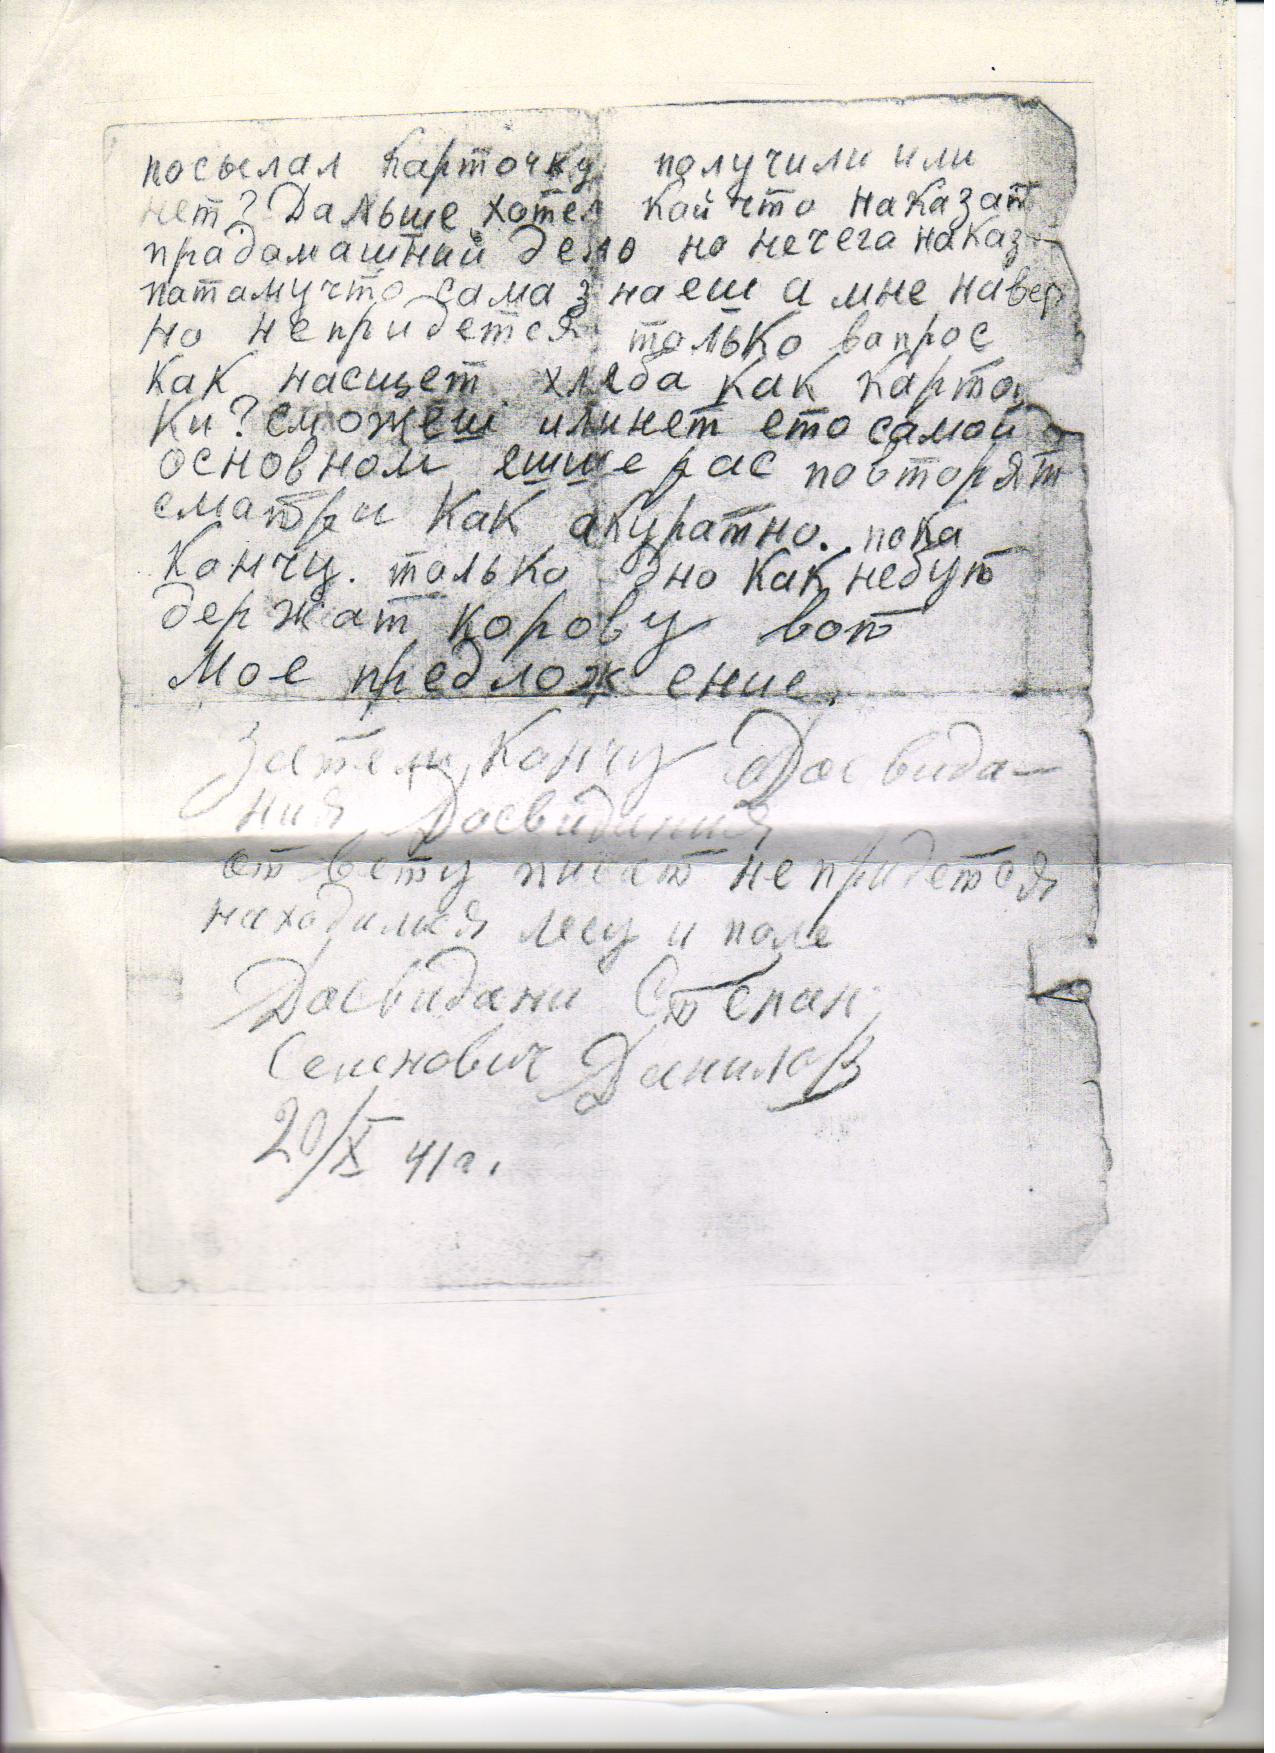 посылал карточку получили или
нет? Дальше хотел кой что наказат
прадамашний дело но нечега наказ
патамучто сама знаеш а мне навер
но непридется только вапрос
как насщет хлеба как карто
ки? сможеш илинет ето самой
основном ешше рас повторят
сматри как акуратно. пока
Кончу. только дно как небут
держат корову вот
Мое предложение.
Затем кончу Досвида-
ния Досвидания
ответу писат непридется
находимся лесу и поле
Досвидани Степан
Семенович Данилов
20/X 41 г.